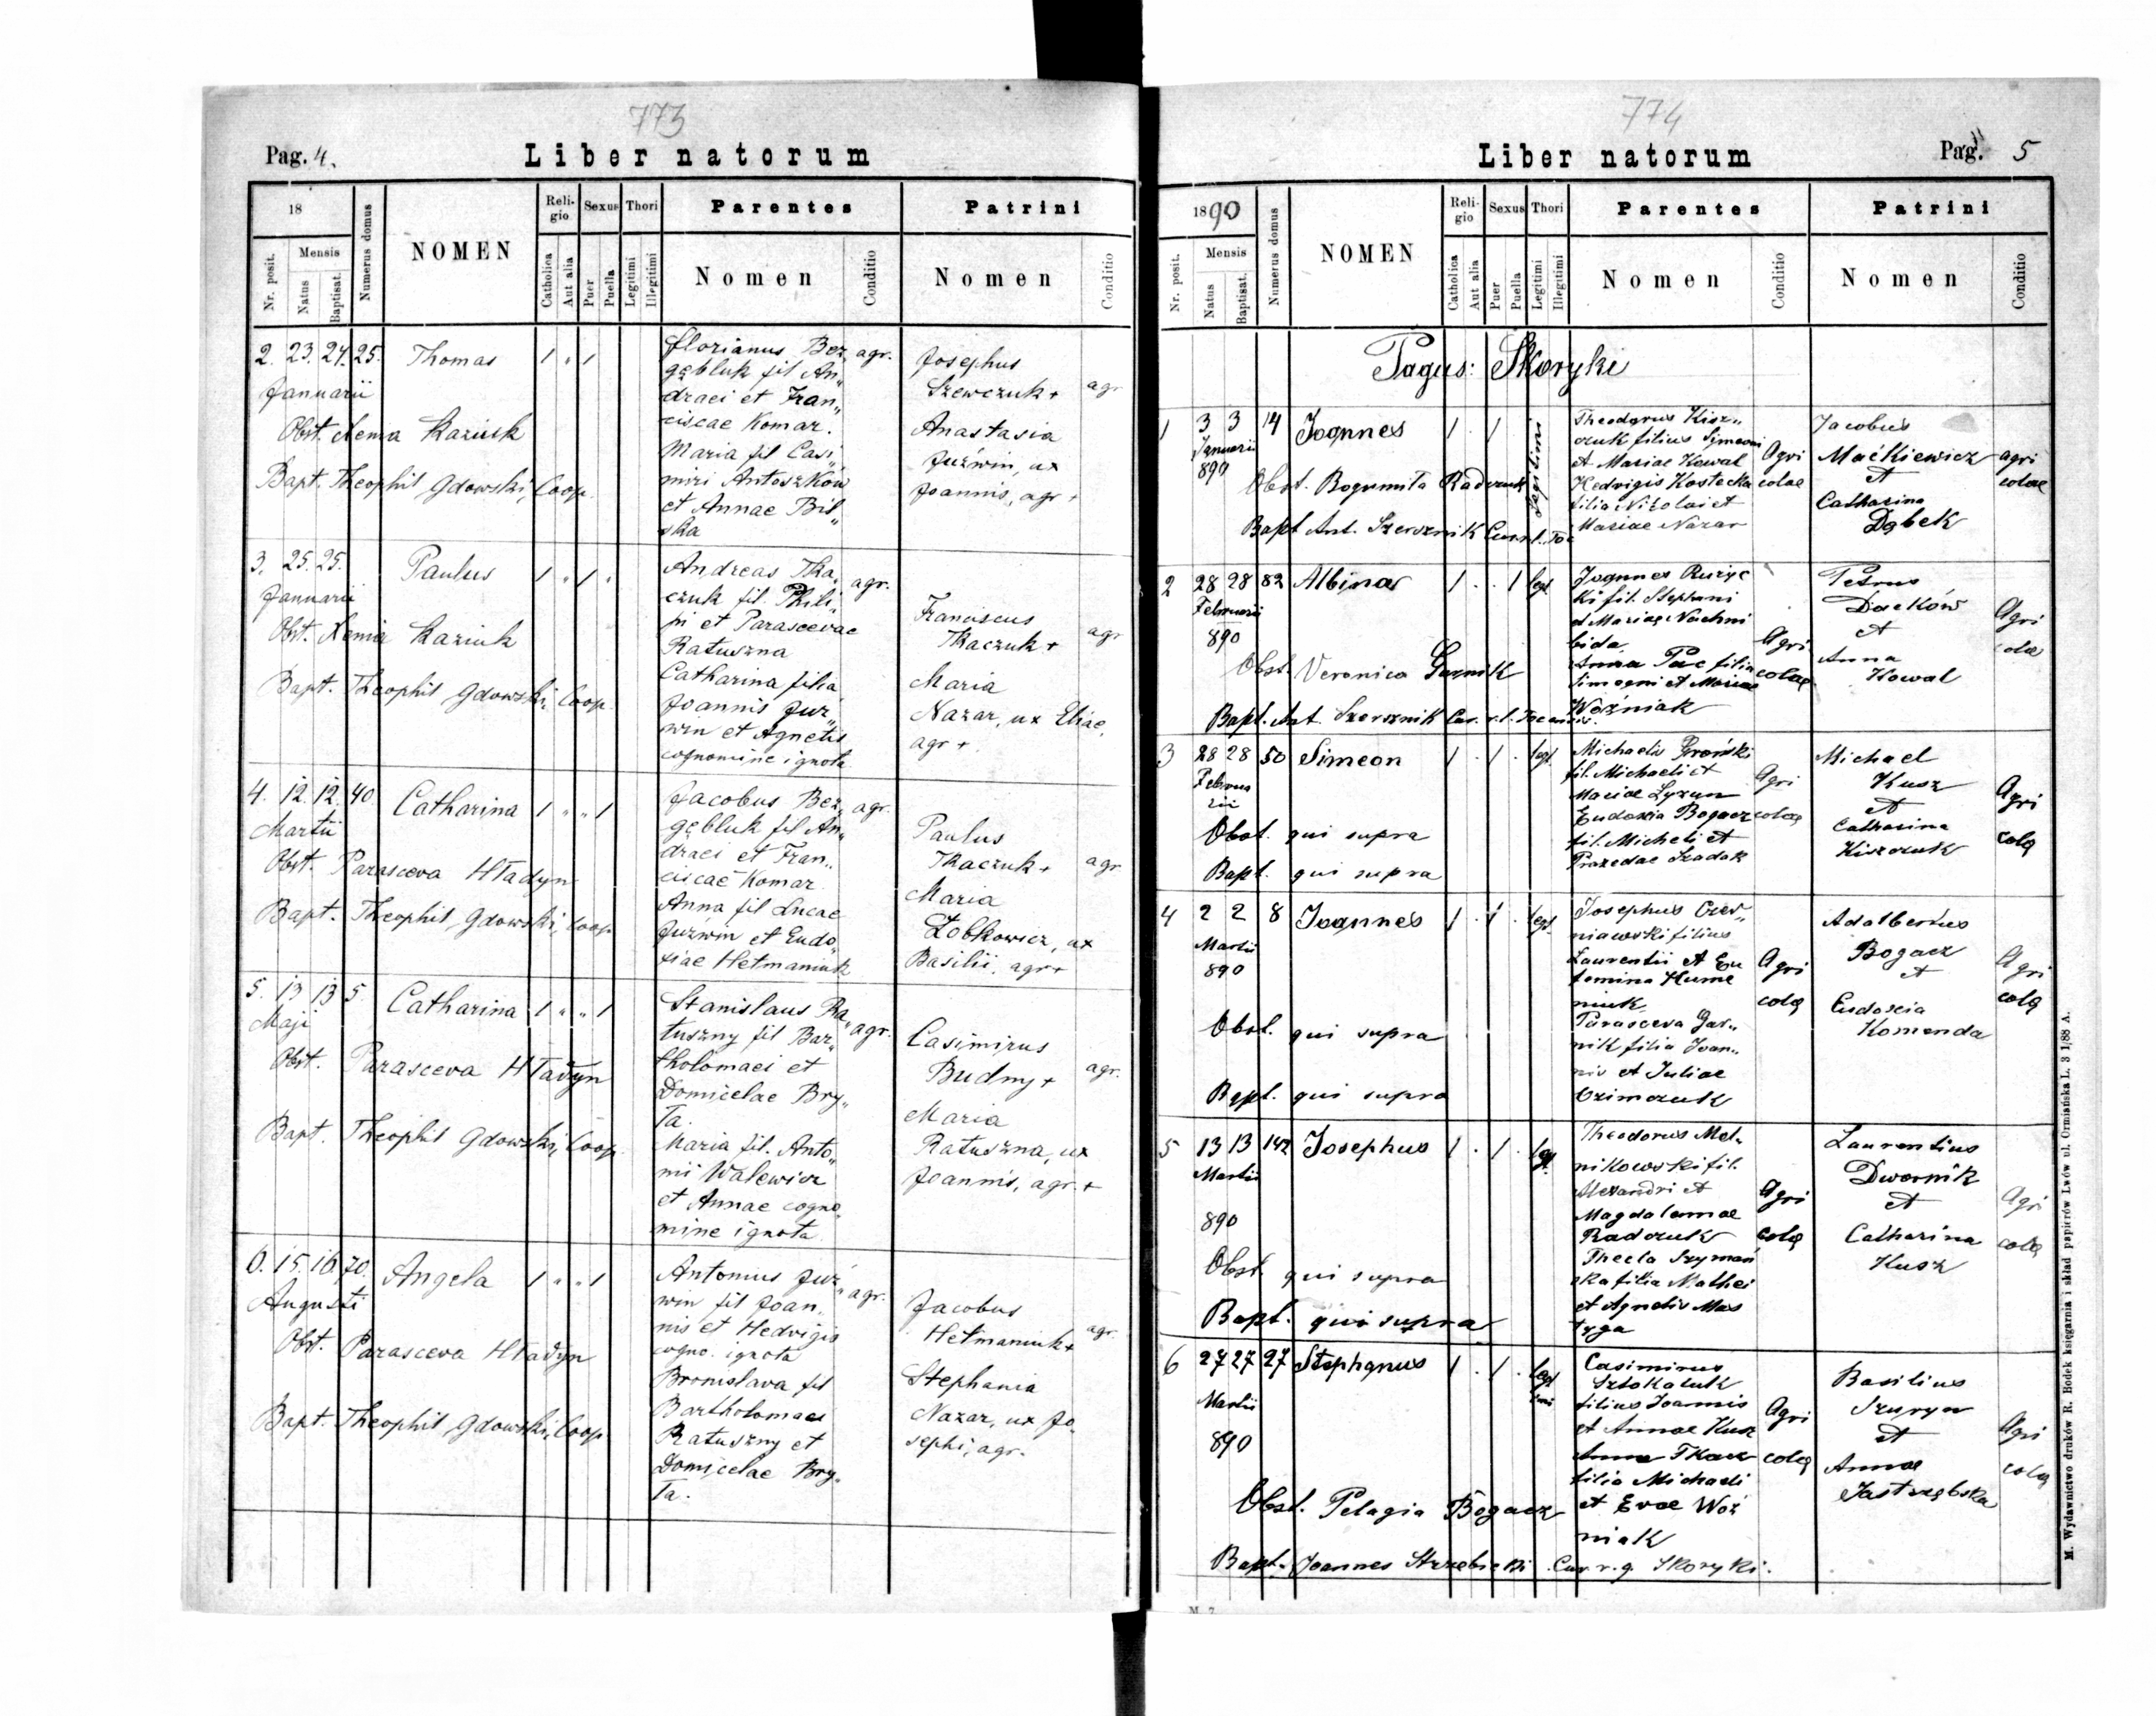 773
Pag. 4.
Liber natorum
18
Mensis
Nr. posit.
Natus
Baptisat.
Numerus domus
NOMEN
Religio
Catholica
Aut alia
Sexus
Puer
Puella
Thori
Legitimi
Illegitimi
Parentes
Nomen
Conditio
Patrini
Nomen
Conditio
2. 23. 24. 25. Thomas 1 " 1
Januarii
Obst. Xenia Kaziuk
Bapt. Theophil Gdowski, Coop.
Florianus Bez„ agr.
gębluk fil An„
draei et Fran„
ciscae Komar.
Maria fil Casi„
miri Antoszków
et Annae Bil„
ska
Josephus
Szewczuk + agr
Anastasia
Juźwin, ux
Joannis, agr +
3. 25. 25. Paulus 1 " 1 "
Januarii
Obst. Xenia Kaziuk
Bapt. Theophil Gdowski, Coop.
Andreas Tka„ agr.
czuk fil. Phili„
pi et Parascevae
Ratuszna
Catharina filia
Joannis Juź„
win et Agnetis
cognomine ignota
Franciscus
Tkaczuk + agr
Maria
Nazar, ux Eliae,
agr +
4. 12. 12. 40 Catharina 1 " " 1
Martii
Obst. Parasceva Hładyn
Bapt. Theophil Gdowski, Coop
Jacobus Bez„ agr.
gębluk fil An„
draei et Fran„
ciscae Komar
Anna fil Lucae
Juźwin et Eudo„
xiae Hetmaniuk
Paulus
Tkaczuk + agr
Maria
Żobkowicz, ux
Basilii, agr +
5. 13 13 5. Catharina 1 " " 1
Maji
Obst. Parasceva Hładyn
Bapt. Theophil Gdowski, Coop.
Stanislaus Ra„ agr.
tuszny fil Bar„
tholomaei et
Domicelae Bry„
ła.
Maria fil. Anto„
nii Walewicz
et Annae cogno„
mine ignota
Casimirus
Budny + agr.
Maria
Ratuszna, ux
Joannis, agr. +
6. 15. 16. 70. Angela 1 " " 1
Augusti
Obst. Parasceva Hładyn
Bapt. Theophil Gdowski, Coop
Antonius Juź„ agr.
win fil Joan„
nis et Hedvigis
cogno. ignota
Bronislava fil
Bartholomaei
Ratuszny et
Domicelae Bry„
ła.
Jacobus
Hetmaniuk + agr.
Stephania
Nazar, ux Jo„
sephi, agr.
774
Liber natorum
Pag. 5
1890
Mensis
Nr. posit.
Natus
Baptisat.
Numerus domus
NOMEN
Religio
Catholica
Aut alia
Sexus
Puer
Puella
Thori
Legitimi
Illegitimi
Parentes
Nomen
Conditio
Patrini
Nomen
Conditio
Pagus: Skoryki
1 3 3 14 Joannes 1 . 1 Legitimi
Januarii
890
Obst. Bogumiła Radczuk
Bapt Ant. Szersznik Cur. r. l. Toc
Theodorus Kisz„
czuk filius Simeoni
et Mariae Kowal
Hedvigis Kostecka
filia Nikolai et
Mariae Nazar
Agri
colae
Jacobus
Maćkiewicz
et
Catharina
Dąbek
agri
colae
2 28 28 82 Albina 1 . . 1 legt
Februarii
890
Obst. Veronica Garnik
Bapt. Ant. Szersznik Cur. r. l.
Joannes Rużyc
ki fil. Stephani
et Mariae Nachni
bida
Anna Pac filia
Simeoni et Mariae
Woźniak
Agri
colae
Petrus
Daćków
et
Anna
Kowal
Agri
colae
3 28 28 50 Simeon 1 . 1 . legt
Februa
rii
Obst. qui supra
Bapt. qui supra
Michaelis Groński
fil. Michaeli et
Mariae Lyzun
Eudoxia Bogacz
fil. Micheli et
Praxedae Szadak
Agri
colae
Michael
Kusz
et
Catharina
Kiszczuk
Agri
colą
4 2 2 8 Joannes 1 . 1 . legt
Martii
890
Obst. qui supra
Bapt. qui supra
Josephus Czer„
niawski filius
Laurentii et Eu
fomina Hume
niuk
Parasceva Gar„
nik filia Joan„
nis et Juliae
Trimczuk
Agri
colą
Adalbertus
Bogacz
et
Eudoxia
Komenda
Agri
colą
5 13 13 142 Josephus 1 . 1 . legt
Martii
890
Obst. qui supra
Bapt. qui supra
Theodorus Mel„
nikowski fil.
Alexandri et
Magdalenae
Radczuk
Thecla Szymań
ska filia Mathei
et Agnetis Mas
tyga
Agri
colą
Laurentius
Dwornik
et
Catharina
Kusz
Agri
colą
6 27 27 27 Stephanus 1 . 1 . legt
imi
Martii
890
Obst. Pelagia Bogacz
Bapt. Joannes Strzębicki Cur. r. g. Skoryki.
Casimirus
Sztokaluk
filius Joannis
et Annae Kusz
Anna Tkacz
filia Michaeli
et Evae Woź
niak
Agri
colą
Basilius
Szuryn
et
Annae
Jastrzębska
Agri
colą
M. Wydawnictwo druków R. Bodek księgarnia i skład papierów Lwów ul. Ormiańska L. 3 1/88 A.